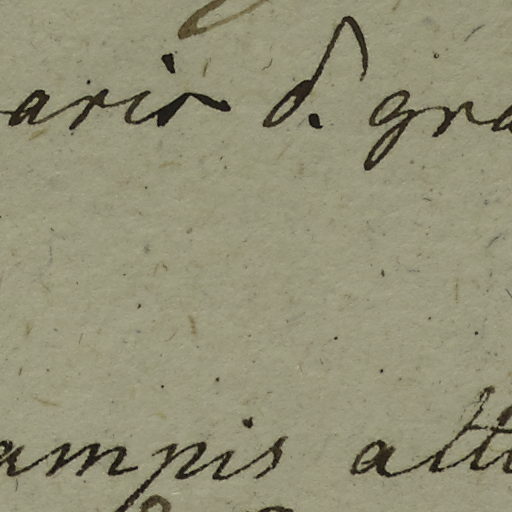 ario d. gra
ampis alt